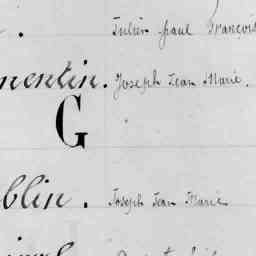 Julien paul François
mentin. Joseph Jean Marie.
G
blin. Joseph Jean Marie